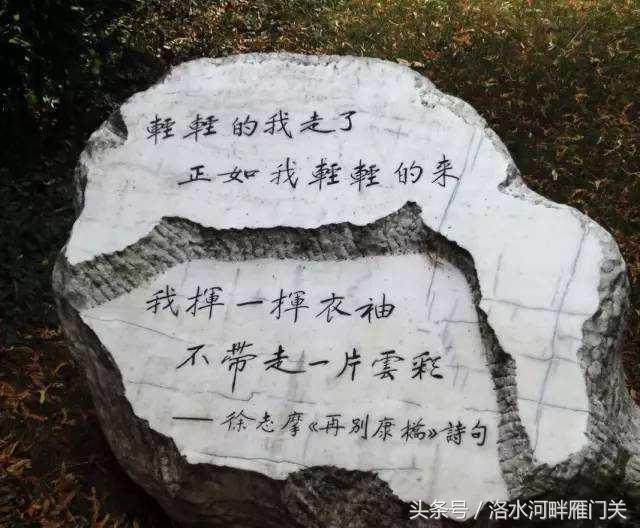 輕輕的我走了
正如我輕輕的来
我揮一揮衣袖
不带走一片雲彩
——徐志摩《再别康橋》詩句
头条号／洛水河畔雁门关